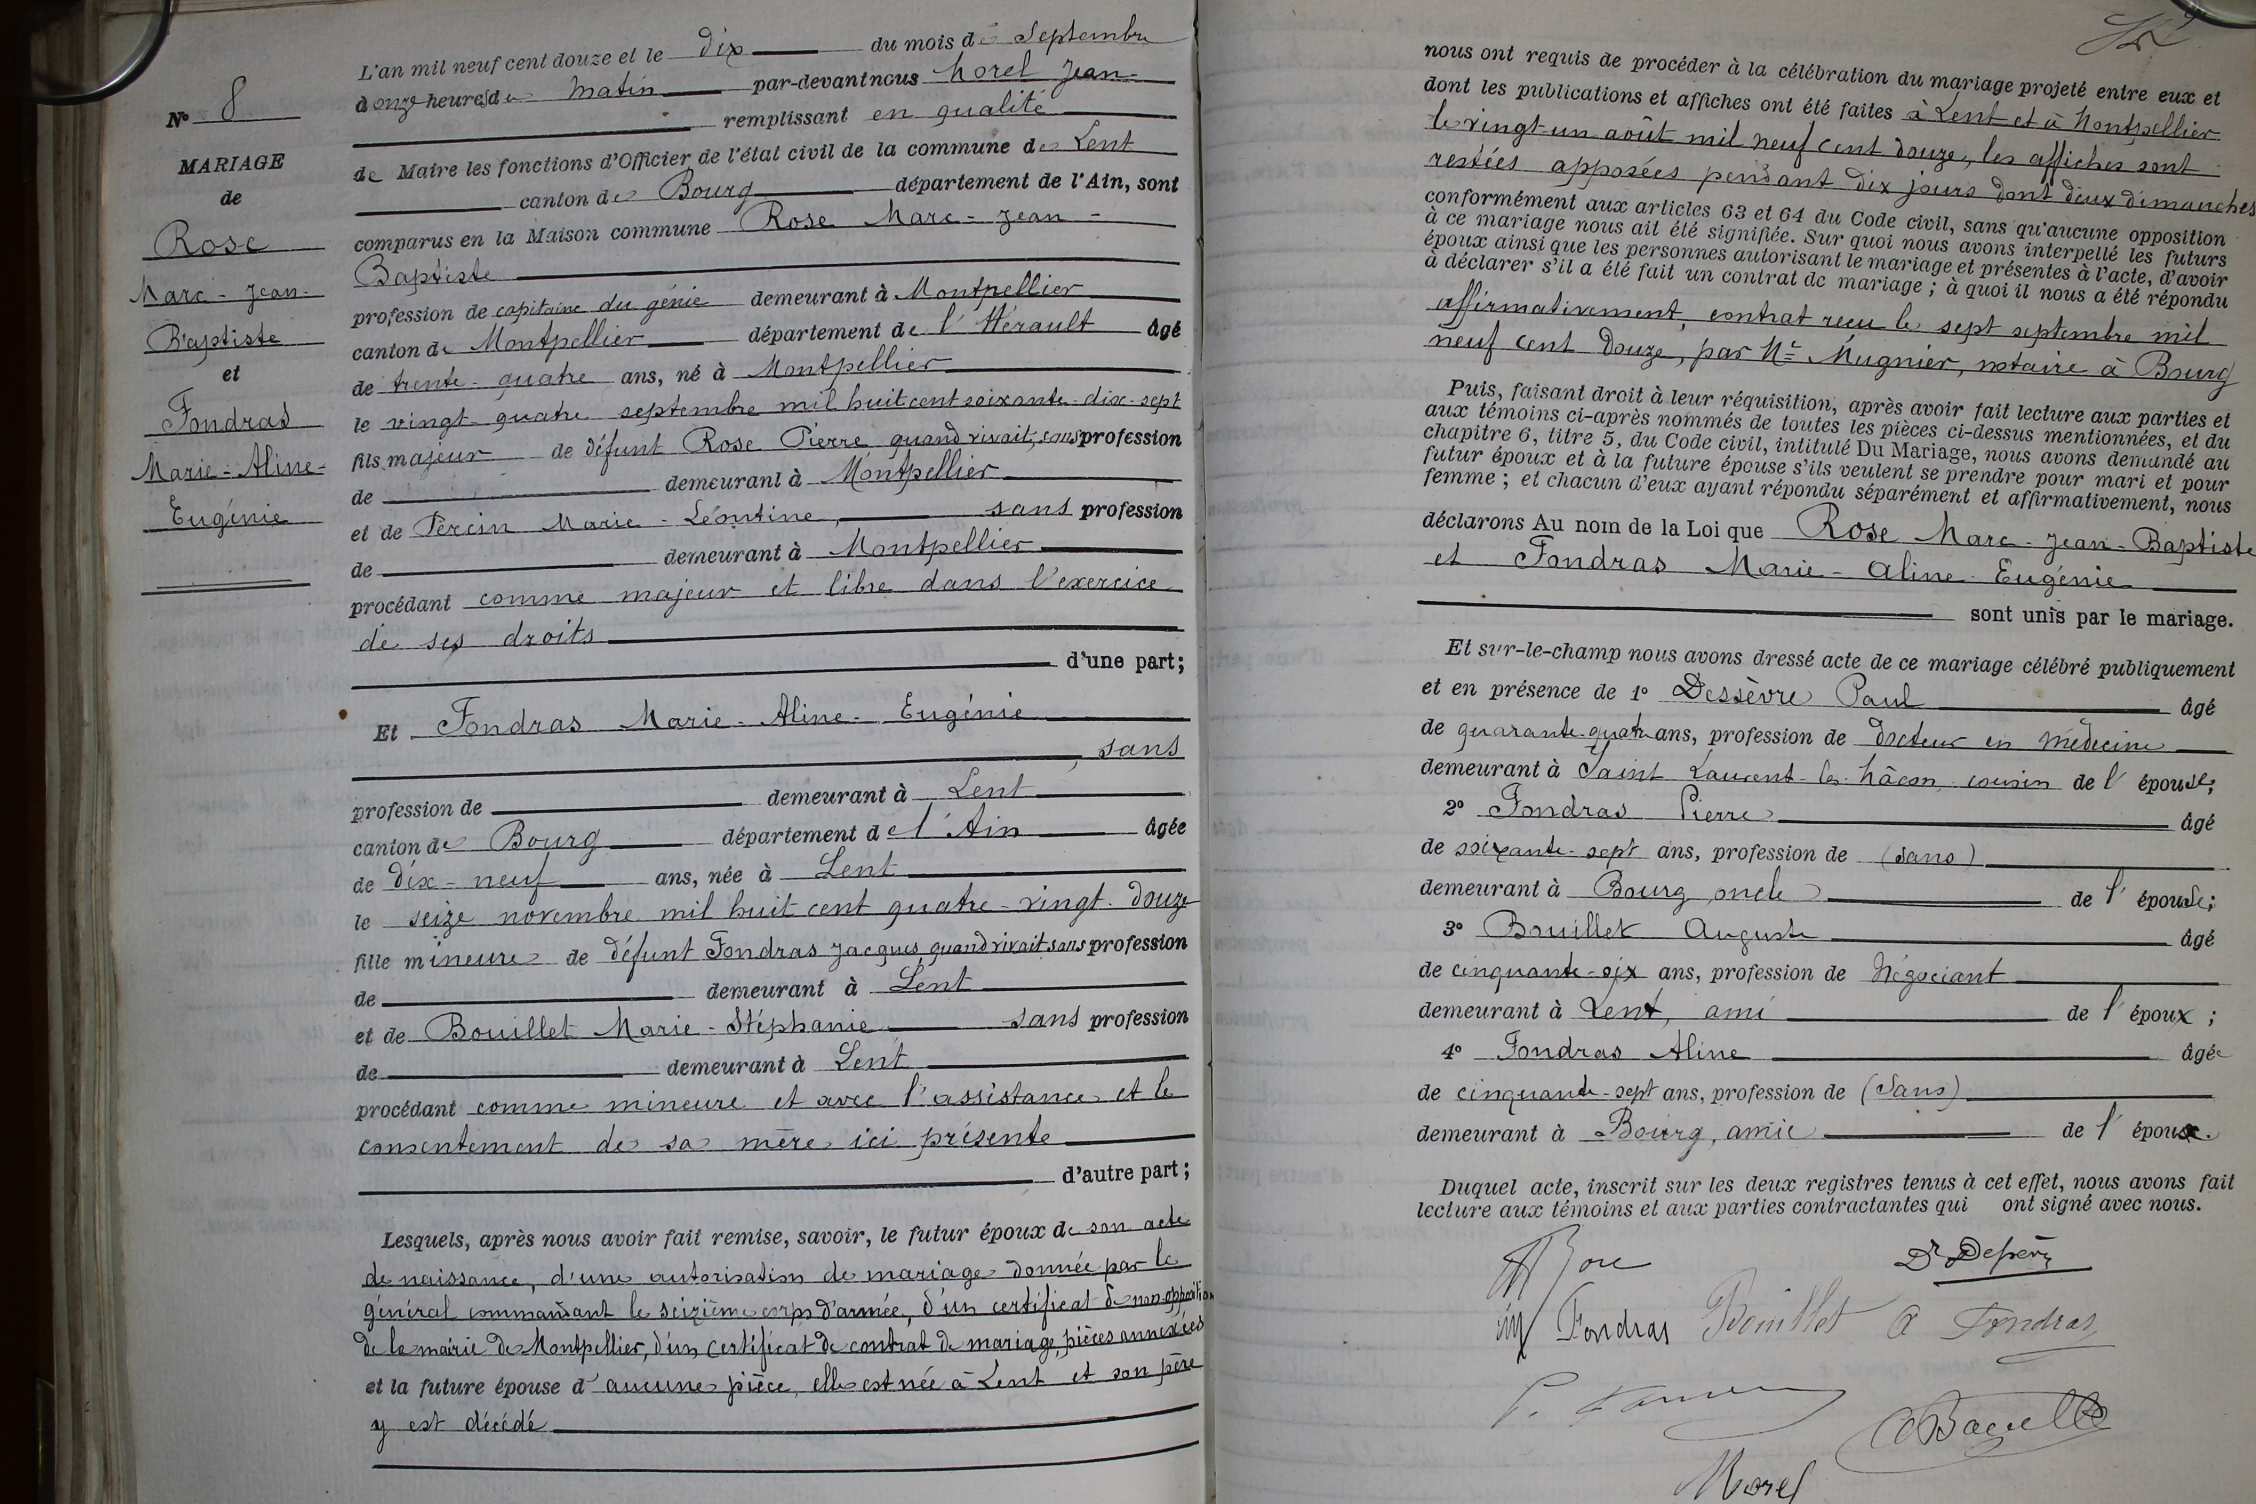 N° 8
MARIAGE
de
Rose
Marc-Jean-
Baptiste
et
Fondras
Marie-Aline-
Eugénie
L'an mil neuf cent douze et le dix du mois de Septembre
à onze heures du Matin par-devant nous Morel Jean
remplissant en qualité
de Maire les fonctions d'Officier de l'état civil de la commune de Lent
canton de Bourg département de l'Ain, sont
comparus en la Maison commune Rose Marc-Jean-
Baptiste
profession de capitaine du génie demeurant à Montpellier
canton de Montpellier département de l'Hérault âgé
de trente-quatre ans, né à Montpellier
le vingt-quatre septembre mil huit cent soixante-dix-sept
fils majeur de défunt Rose Pierre quand vivait, sans profession
de demeurant à Montpellier
et de Percin Marie-Léontine, sans profession
de demeurant à Montpellier
procédant comme majeur et libre dans l'exercice
de ses droits
d'une part;
Et Fondras Marie-Aline-Eugénie
, sans
profession de demeurant à Lent
canton de Bourg département de l'Ain âgée
de dix-neuf ans, née à Lent
le seize novembre mil huit cent quatre-vingt-douze
fille mineure de défunt Fondras Jacques, quand vivait sans profession
de demeurant à Lent
et de Bouillet Marie-Stéphanie sans profession
de demeurant à Lent
procédant comme mineure et avec l'assistance et le
consentement de sa mère ici présente
d'autre part;
Lesquels, après nous avoir fait remise, savoir, le futur époux de son acte
de naissance, d'une autorisation de mariage donnée par le
général commandant le seizième corps d'armée, d'un certificat de non opposition
de la mairie de Montpellier, d'un certificat de contrat de mariage, pièces annexées
et la future épouse d'aucune pièce, elle est née à Lent et son père
y est décédé
nous ont requis de procéder à la célébration du mariage projeté entre eux et
dont les publications et affiches ont été faites à Lent et à Montpellier
le vingt-un août mil neuf cent douze, les affiches sont
restées apposées pendant dix jours dont deux dimanches
conformément aux articles 63 et 64 du Code civil, sans qu'aucune opposition
à ce mariage nous ait été signifiée. Sur quoi nous avons interpellé les futurs
époux ainsi que les personnes autorisant le mariage et présentes à l'acte, d'avoir
à déclarer s'il a été fait un contrat de mariage ; à quoi il nous a été répondu
affirmativement, contrat reçu le sept septembre mil
neuf cent douze, par Me Mugnier, notaire à Bourg
Puis, faisant droit à leur réquisition, après avoir fait lecture aux parties et
aux témoins ci-après nommés de toutes les pièces ci-dessus mentionnées, et du
chapitre 6, titre 5, du Code civil, intitulé Du Mariage, nous avons demandé au
futur époux et à la future épouse s'ils veulent se prendre pour mari et pour
femme ; et chacun d'eux ayant répondu séparément et affirmativement, nous
déclarons Au nom de la Loi que Rose Marc-Jean-Baptiste
et Fondras Marie-Aline Eugénie
sont unis par le mariage.
Et sur-le-champ nous avons dressé acte de ce mariage célébré publiquement
et en présence de 1° Dessèvre Paul âgé
de quarante-quatre ans, profession de docteur en médecine
demeurant à Saint Laurent-les-Mâcon, cousin de l'épouse;
2° Fondras Pierre âgé
de soixante-sept ans, profession de (sans)
demeurant à Bourg, oncle de l'épouse;
3° Bouillet Auguste âgé
de cinquante-six ans, profession de Négociant
demeurant à Lent, ami de l'époux ;
4° Fondras Aline âgée
de cinquante-sept ans, profession de (Sans)
demeurant à Bourg, amie de l'époux.
Duquel acte, inscrit sur les deux registres tenus à cet effet, nous avons fait
lecture aux témoins et aux parties contractantes qui ont signé avec nous.
Rose
Fondras Bouillet A Fondras
Morel